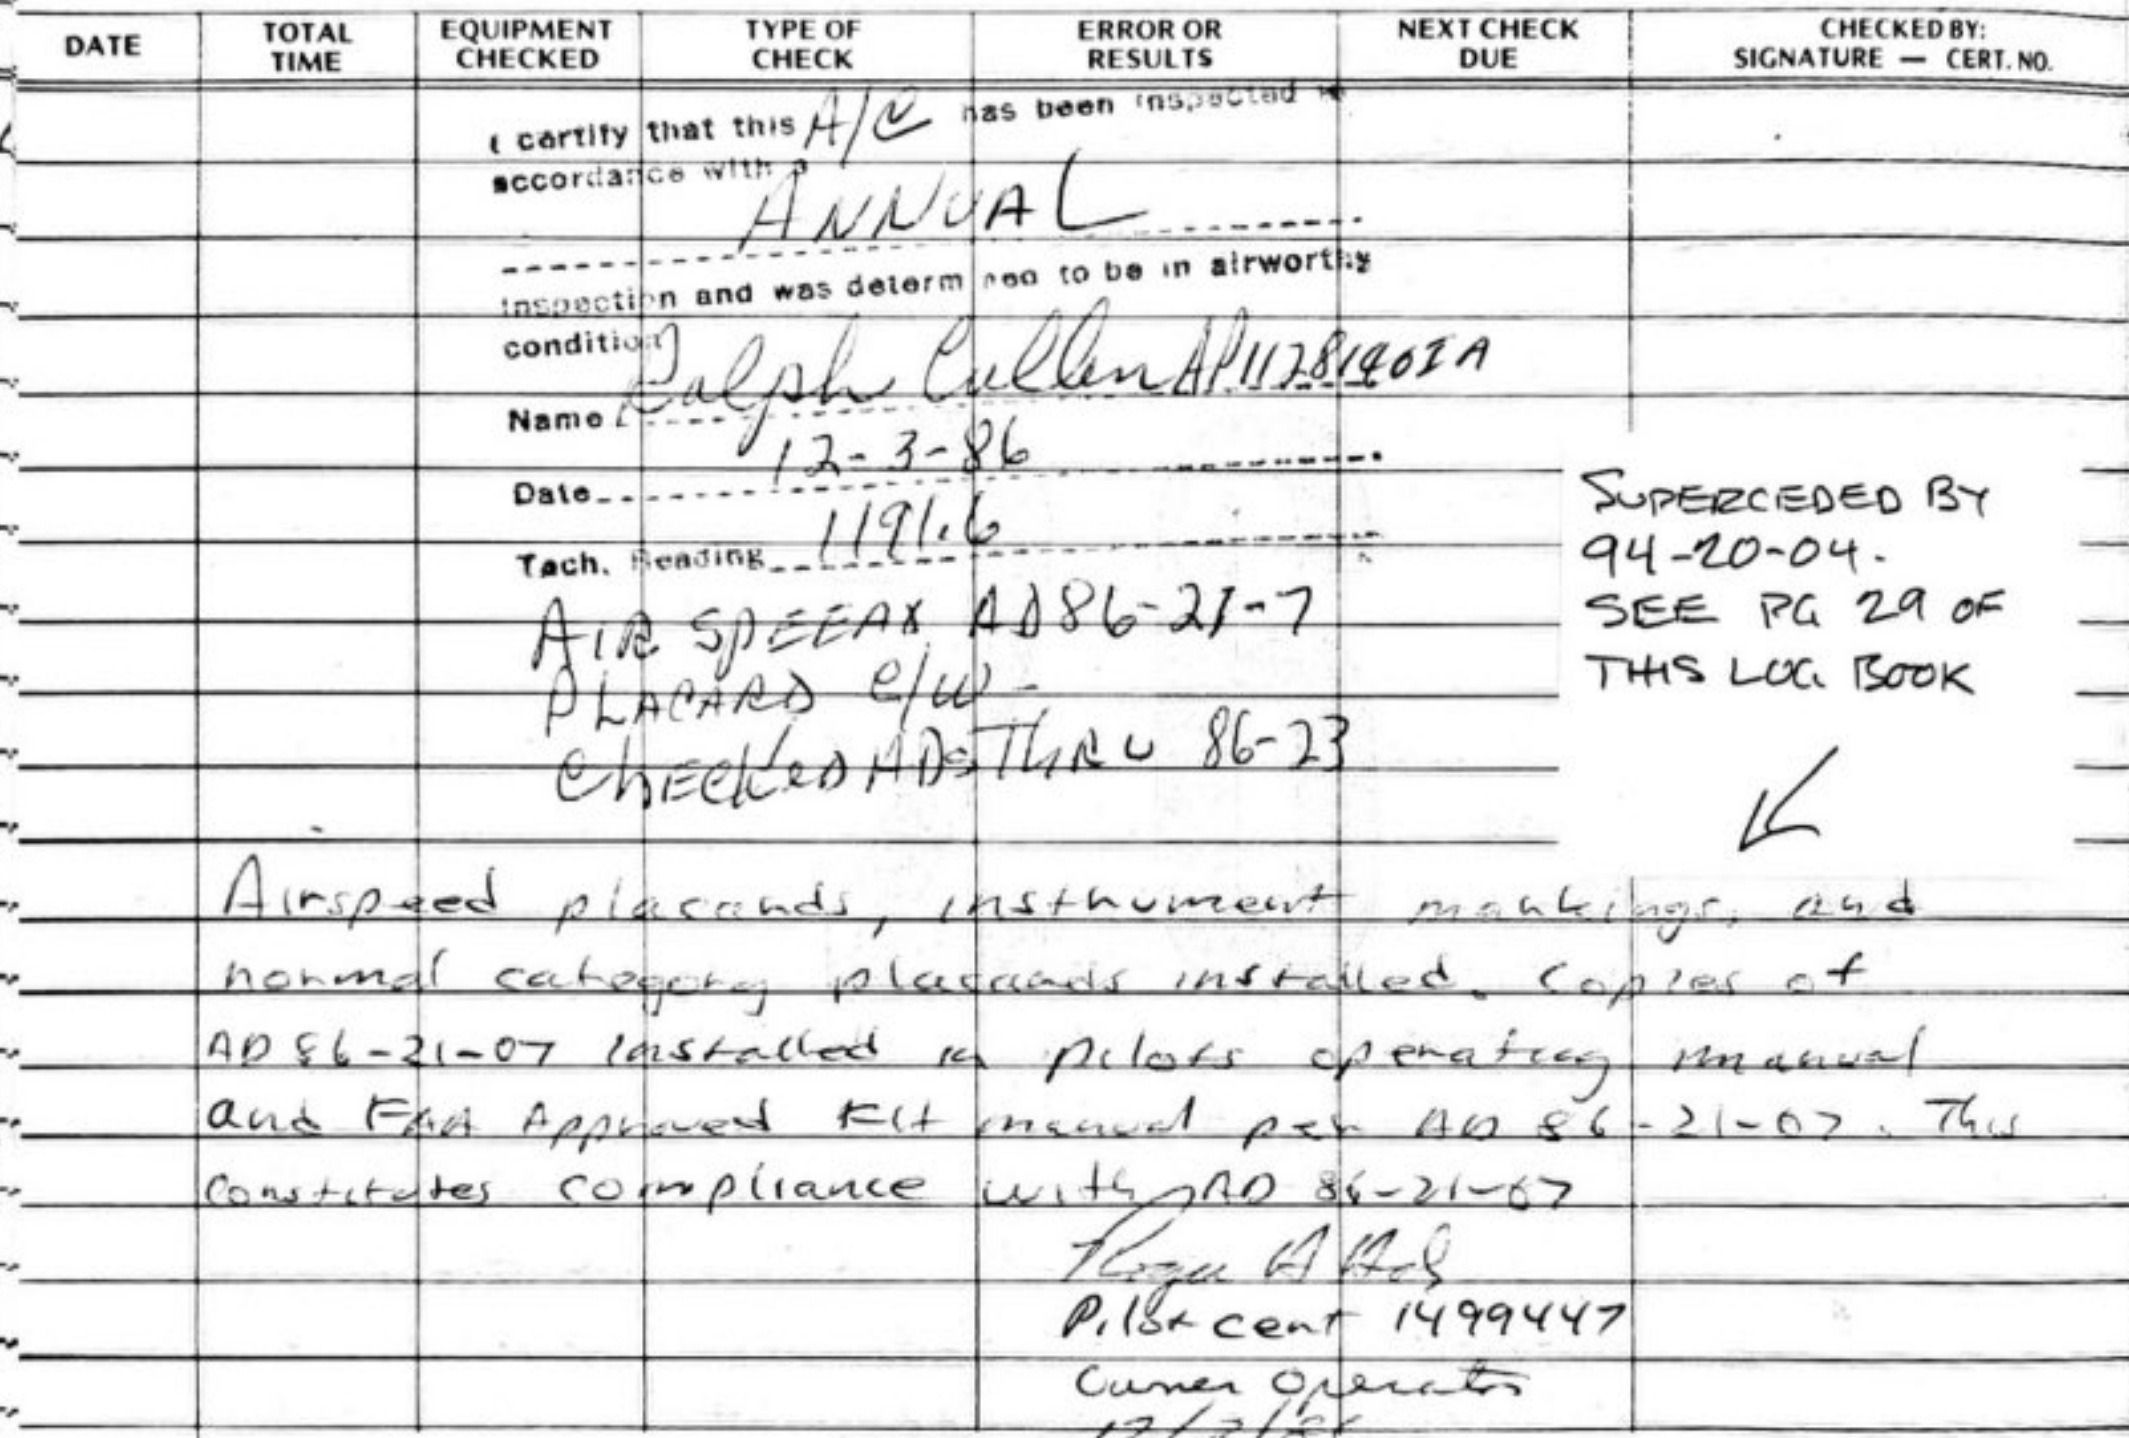 DATE
TOTAL TIME
EQUIPMENT CHECKED
TYPE OF CHECK
ERROR OR RESULTS
NEXT CHECK DUE
CHECKED BY:
SIGNATURE — CERT. NO.
I certify that this A/C has been inspected in
accordance with a
ANNUAL
inspection and was determined to be in airworthy
condition
Name Ralph Cullen AP11281401A
Date 12-3-86
Tach. Reading 1191.6
AIR SPEEAX AD 86-21-7
PLACARD C/W -
CHECKED ADS THRU 86-23
SUPERCEDED BY
94-20-04.
SEE PG 29 OF
THIS LOG BOOK
Airspeed placards, instrument markings, and
normal category placards installed. Copies of
AD 86-21-07 installed in pilots operating manual
and FAA Approved Flt manual per AD 86-21-07. This
constitutes compliance with AD 86-21-07
Pilot cert 1499447
Owner Operator